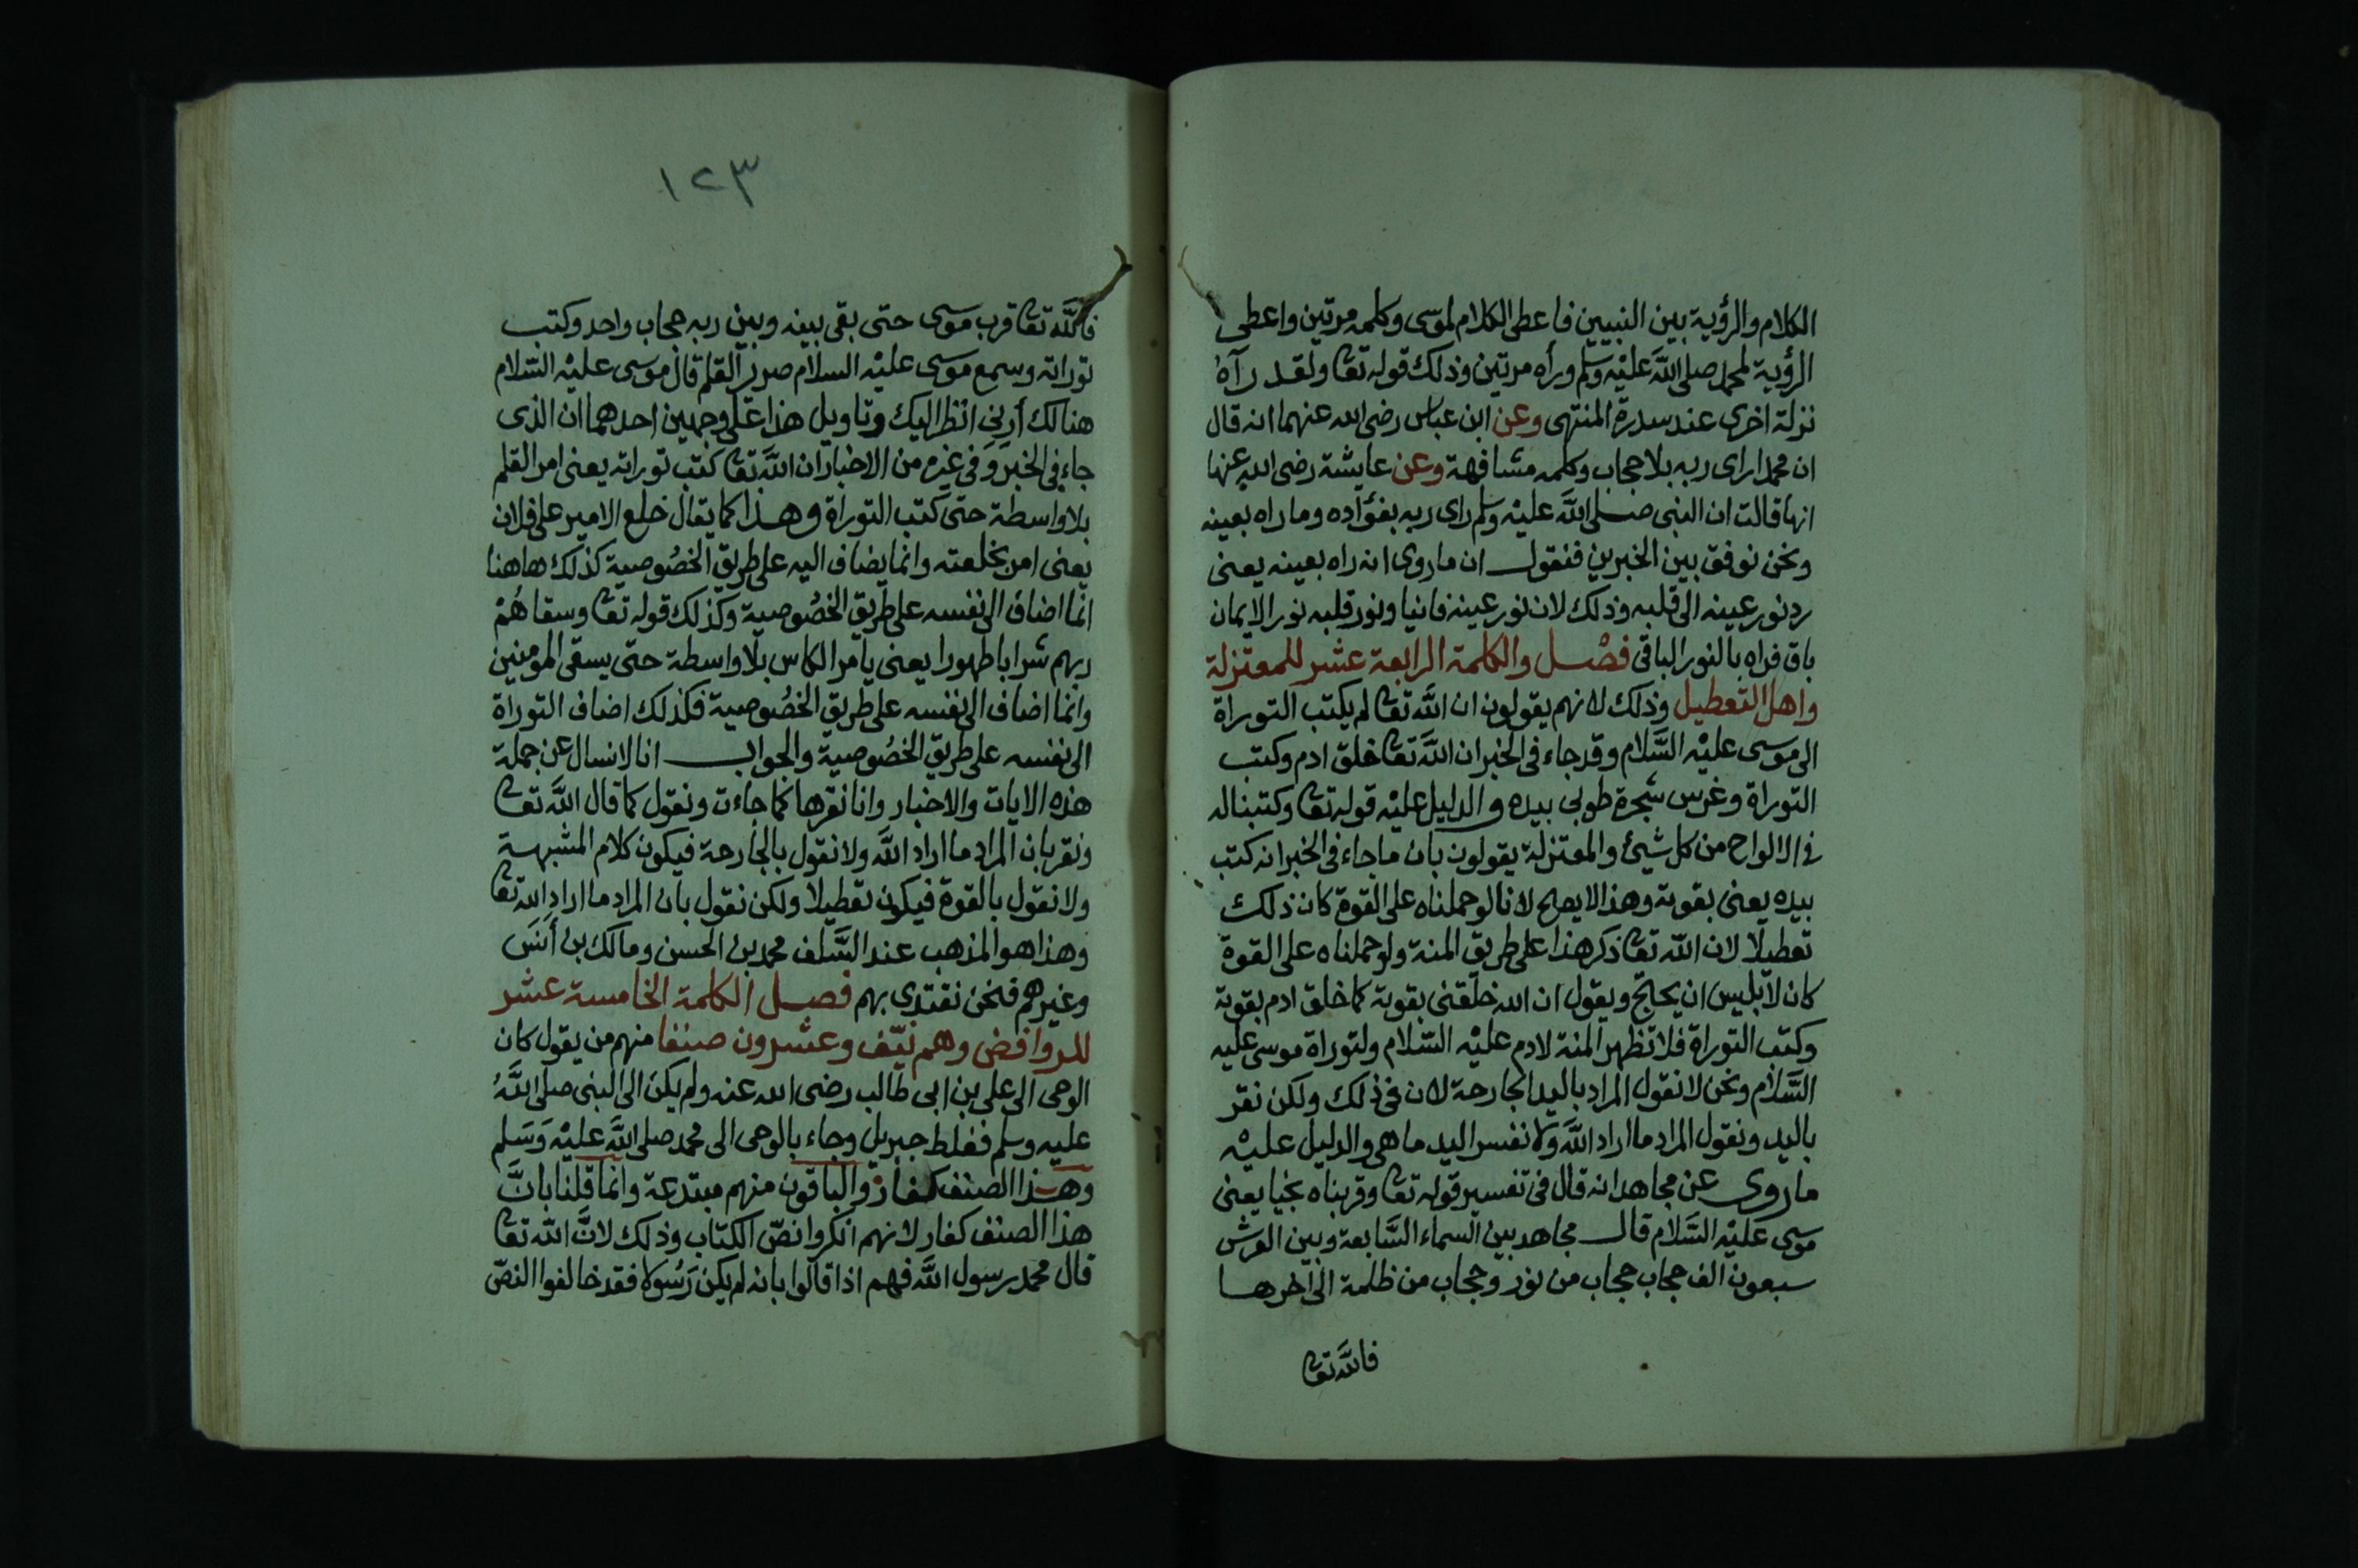 الكلام والرؤية بين النبيين فاعطى الكلام لموسى وكلمه مرتين واعطى
الرؤية لمحمد صلى اللَّه عليْه وسلم ورأه مرتين وذلك قوله تعا ولقد رآهُ
نزلة اخرى عند سدرة المنتهى وعن ابن عباس رضى الله عنهما انه قال
ان محمدا راى ربه بلا حجاب وكلمه مشافهة وعن عايشة رضى الله عنها
انها قالت ان النبى صلى اللَّه عليْه وسلم راى ربه بفؤاده وما راه بعينه
ونحن نوفق بين الخبرين فنقول ان ما روى انه راه بعينه يعنى
رد نور عينه الى قلبه وذلك لان نور عينه فانيا ونور قلبه نور الايمان
باق فراه بالنور الباقى فصْل والكلمة الرابعة عشر للمعتزلة
واهل التعطيل وذلك لانهم يقولون ان اللَّه تعا لم يكتب التوراة
الى موسى عليْه السَّلام وقد جاء فى الخبر ان اللَّه تعا خلق ادم وكتب
التوراة وغرس شجرة طوبى بيده والدليل عليْه قوله تعا وكتبنا له
فى الالواح من كل شيئ والمعتزلة يقولون بان ما جاء فى الخبر انه كتب
بيده يعنى بقوته وهذا لا يصح لانا لو حملناه على القوة كان ذلك
تعطيلا لان اللّه تعا ذكر هذا على طريق المنة ولو حملناه على القوة
كان لابليس ان يحتج ويقول ان الله خلقنى بقوته كما خلق ادم بقوته
وكتب التوراة فلا تظهر المنة لادم عليْه السّلام ولتوراة موسى عليه
السَّلام ونحن لا نقول المراد باليد الجارحة لان فى ذلك ولكن نقر
باليد ونقول المراد ما اراد اللَّه ولا نفسر اليد ما هى والدليل عليْه
ما روى عن مجاهد انه قال فى تفسير قوله تعا وقربناه نجيا يعنى
موسى عليْه السَّلام قال مجاهد بين السماء السَّابعة وبين العرش
سبعون الف حجاب حجاب من نور وحجاب من ظلمة الى آخرها
فاللَّه تعا
١٢٣
فاللَّه تعا قرب موسى حتى بقى بينه وبين ربه حجاب واحد وكتب
توراته وسمع موسى عليْه السلام صرير القلم قال موسى عليْه السّلام
هنالك أرنِى انظر اليك وتاويل هذا على وجهين احدهما ان الذى
جاء فى الخبر وفى غيره من الاخبار ان اللَّه تعا كتب توراته يعنى امر القلم
بلا واسطة حتى كتب التوراة وهذا كما يقال خلع الامير على فلان
يعنى امر بخلعته وانما يضاف اليه على طريق الخصُوصية كذلك هاهنا
انما اضاف الى نفسه على طريق الخصُوصية وكذلك قوله تعا وسقاهُمْ
ربهم شرابا طهورا يعنى يامر الكاس بلا واسطة حتى يسقى المومنين
وانما اضاف الى نفسه على طريق الخصُوصية فكذلك اضاف التوراة
الى نفسه على طريق الخصُوصية والجواب انا لا نسال عن جملة
هذه الايات والاخبار وانا نقرها كما جاءت ونقول كما قال اللَّه تعا
ونقر بان المراد ما اراد اللَّه ولا نقول بالجارحة فيكون كلام المشبهة
ولا نقول بالقوة فيكون تعطيلا ولكن نقول بان المراد ما اراد اللّه تعا
وهذا هو المذهب عند السَّلف محمد بن الحسن ومالك بن أَنسَ
وغيرهم فنحن نقتدى بهم فصل الكلمة الخامسة عشر
للروافض وهم نيّف وعشرون صنفا منهم من يقول كان
الوحى الى على بن ابى طالب رضى الله عنه ولم يكن الى النبى صلى اللَّهُ
عليه وسلم فغلط جبريل وجاء بالوحى الى محمد صلى اللَّه عليْه وَسَلم
وهذا الصنف كفار والباقون منهم مبتدعة وانما قلنا بانَّ
هذا الصنف كفار لانهم انكروا نصّ الكتاب وذلك لانَّ اللّه تعا
قال محمد رسول اللَّه فهم اذا قالوا بانه لم يكن رَسُولا فقد خالفوا النصّ